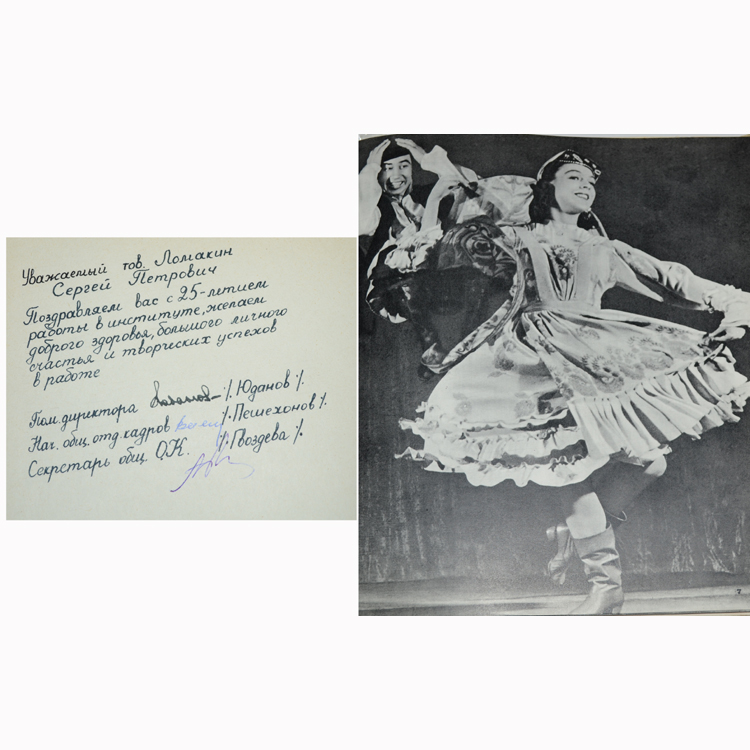 Уважаемый тов. Ломакин
Сергей Петрович
Поздравляем вас с 25-летием
работы в институте, желаем
доброго здоровья, большого личного
счастья и творческих успехов
в работе
Пом. директора /. Юданов /.
Нач. общ. отд. кадров /. Пешехонов /.
Секретарь общ. О.К. /. Гвоздева /.
7